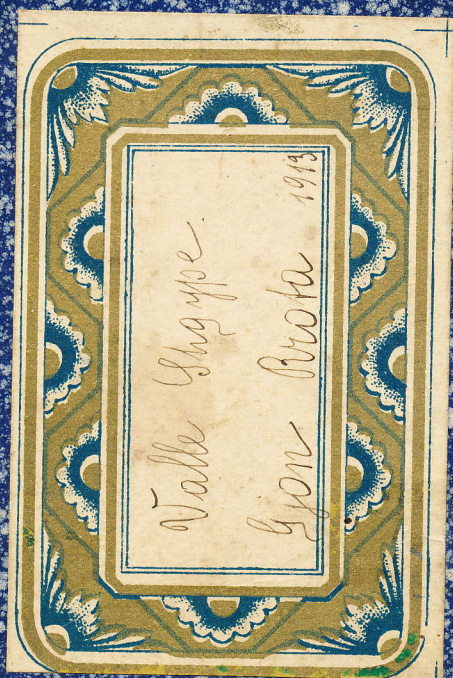 Valle Shqype.
Gjon Prota 1913